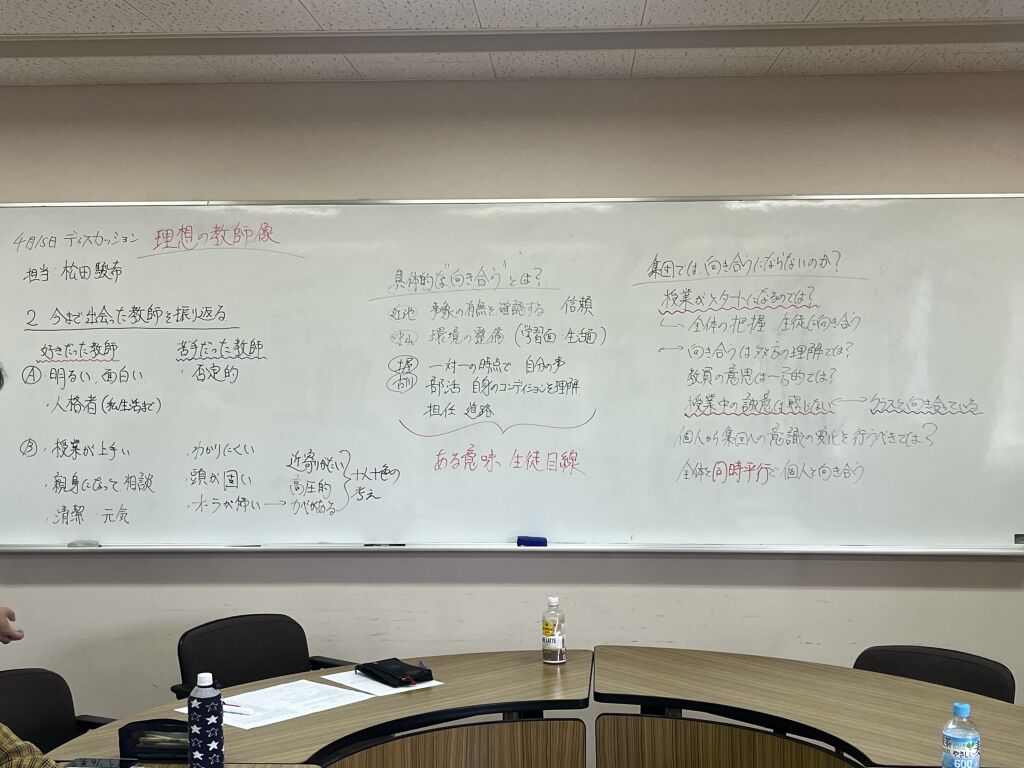 4月15日 ディスカッション 理想の教師像
担当 松田駿希
2 今まで出会った教師を振り返る
好きだった教師 苦手だった教師
Ⓐ 明るい、面白い ・否定的
・人格者(私生活まで)
Ⓑ ・授業が上手い ・わかりにくい
・親身になって相談 ・頭が固い
・清潔 元気 ・オーラが怖い→
近寄りがたい
高圧的
カベがある
十人十色の
考え
具体的な"向き合う"とは?
近池 事象の有無を確認する 信頼
中山 環境の整備(学習面 生活面)
土堀 一対一の時点で 自分の事
古川 部活 自身のコンディションを理解
担任 進路
ある意味 生徒目線
集団では、向き合うにならないのか?
授業がスタートになるのでは?
全体の把握 生徒に向き合う
向き合うは双方の理解では?
教員の意思は一方的では?
授業中の誠意は感じない ←→ クラスと向き合っている
個人から集団への意識の変化を行うべきでは?
全体と同時平行で個人と向き合う
LATTE
やさしい
600